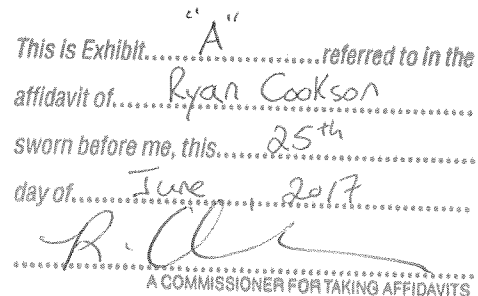 This is Exhibit "A" referred to in the
affidavit of Ryan Cookson
sworn before me, this 25th
day of June, 2017
A COMMISSIONER FOR TAKING AFFIDAVITS